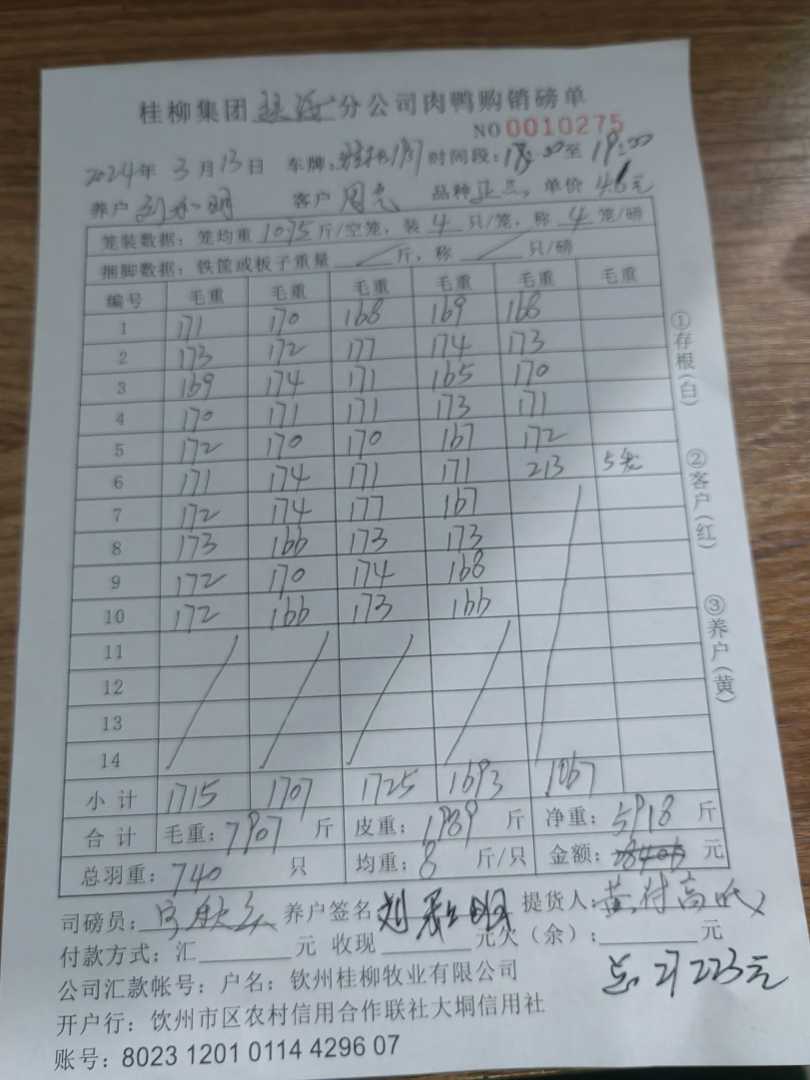 桂柳集团 分公司肉鸭购销磅单
NO 0010275
2024年 3月13日 车牌: 时间段:18:00至19:00
养户 刘 明 客户 周 品种 单价 4.6元
笼装数据: 笼均重 10.75 斤/空笼, 装 4 只/笼, 称 4 笼/磅
捆脚数据: 铁筐或板子重量 斤, 称 只/磅
编号 毛重 毛重 毛重 毛重 毛重 毛重
1 171 170 168 169 168
2 173 172 177 174 173
3 169 174 171 165 170
4 170 171 171 173 171
5 172 170 170 167 172
6 171 174 171 171 213 5笼
7 172 174 177 167
8 173 166 173 173
9 172 170 174 168
10 172 166 173 166
11
12
13
14
小计 1715 1707 1725 1693 1067
合计 毛重: 7907 斤 皮重: 1989 斤 净重: 5918 斤
总羽重: 740 只 均重: 8 斤/只 金额: 元
司磅员: 养户签名 刘 明 提货人: 黄村高
付款方式: 汇 元 收现 元欠(余): 元
总 27223元
公司汇款帐号: 户名: 钦州桂柳牧业有限公司
开户行: 钦州市区农村信用合作联社大垌信用社
账号: 8023 1201 0114 4296 07
①存根(白)
②客户(红)
③养户(黄)